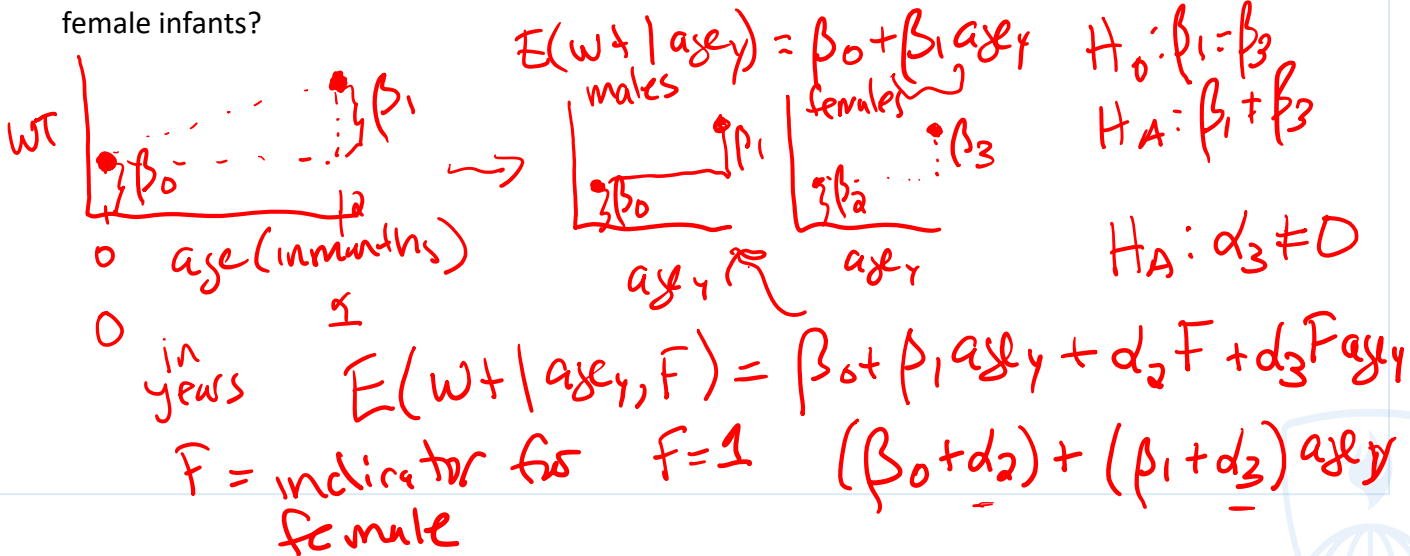 female infants?
E(wt | age_Y) = β₀ + β₁ age_Y
H₀: β₁ = β₃
H_A: β₁ ≠ β₃
H_A: α₃ ≠ 0
WT
β₀
β₁
0
age (in months)
0
1
in years
males
β₀
β₁
age_Y
females
β₂
β₃
age_Y
E(wt | age_Y, F) = β₀ + β₁ age_Y + α₂ F + α₃ F age_Y
F = indicator for female
F = 1 (β₀ + α₂) + (β₁ + α₃) age_Y